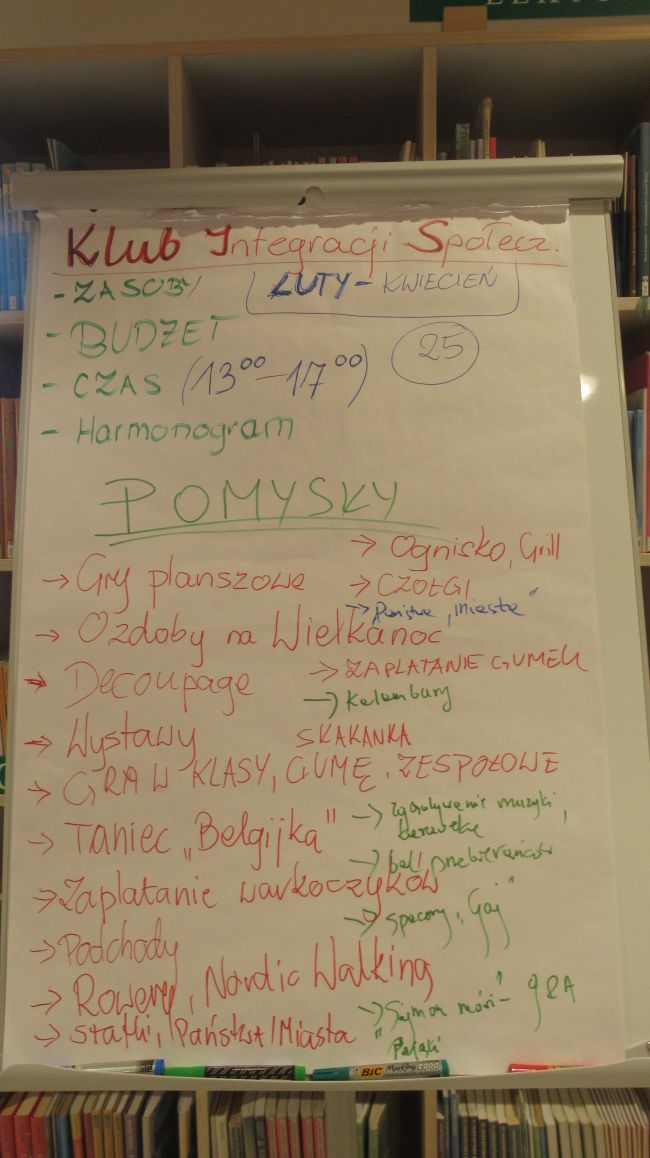 Klub Integracji Społecz.
- ZASOBY
LUTY - KWIECIEŃ
- BUDŻET
- CZAS (13⁰⁰ - 17⁰⁰)
25
- Harmonogram
POMYSKY
→ Gry planszowe
→ Ozdoby na Wielkanoc
→ Decoupage
→ Wystawy
→ GRA W KLASY, GUMĘ, ZESPOŁOWE
→ Taniec „Belgijka"
→ Zaplatanie warkoczyków
→ Podchody
→ Rowery, Nordic Walking
→ Statki, Państwa/Miasta
→ Ognisko, Grill
→ CZOŁGI
→ Państwa „miasta"
→ ZAPLATANIE GUMEK
→ Kalambury
SKAKANKA
→ muzyki,
karaoke
→ bal przebierańców
→ spacery „Gaj"
→ „Sajmon mówi" - gra
BIC Marking 2000